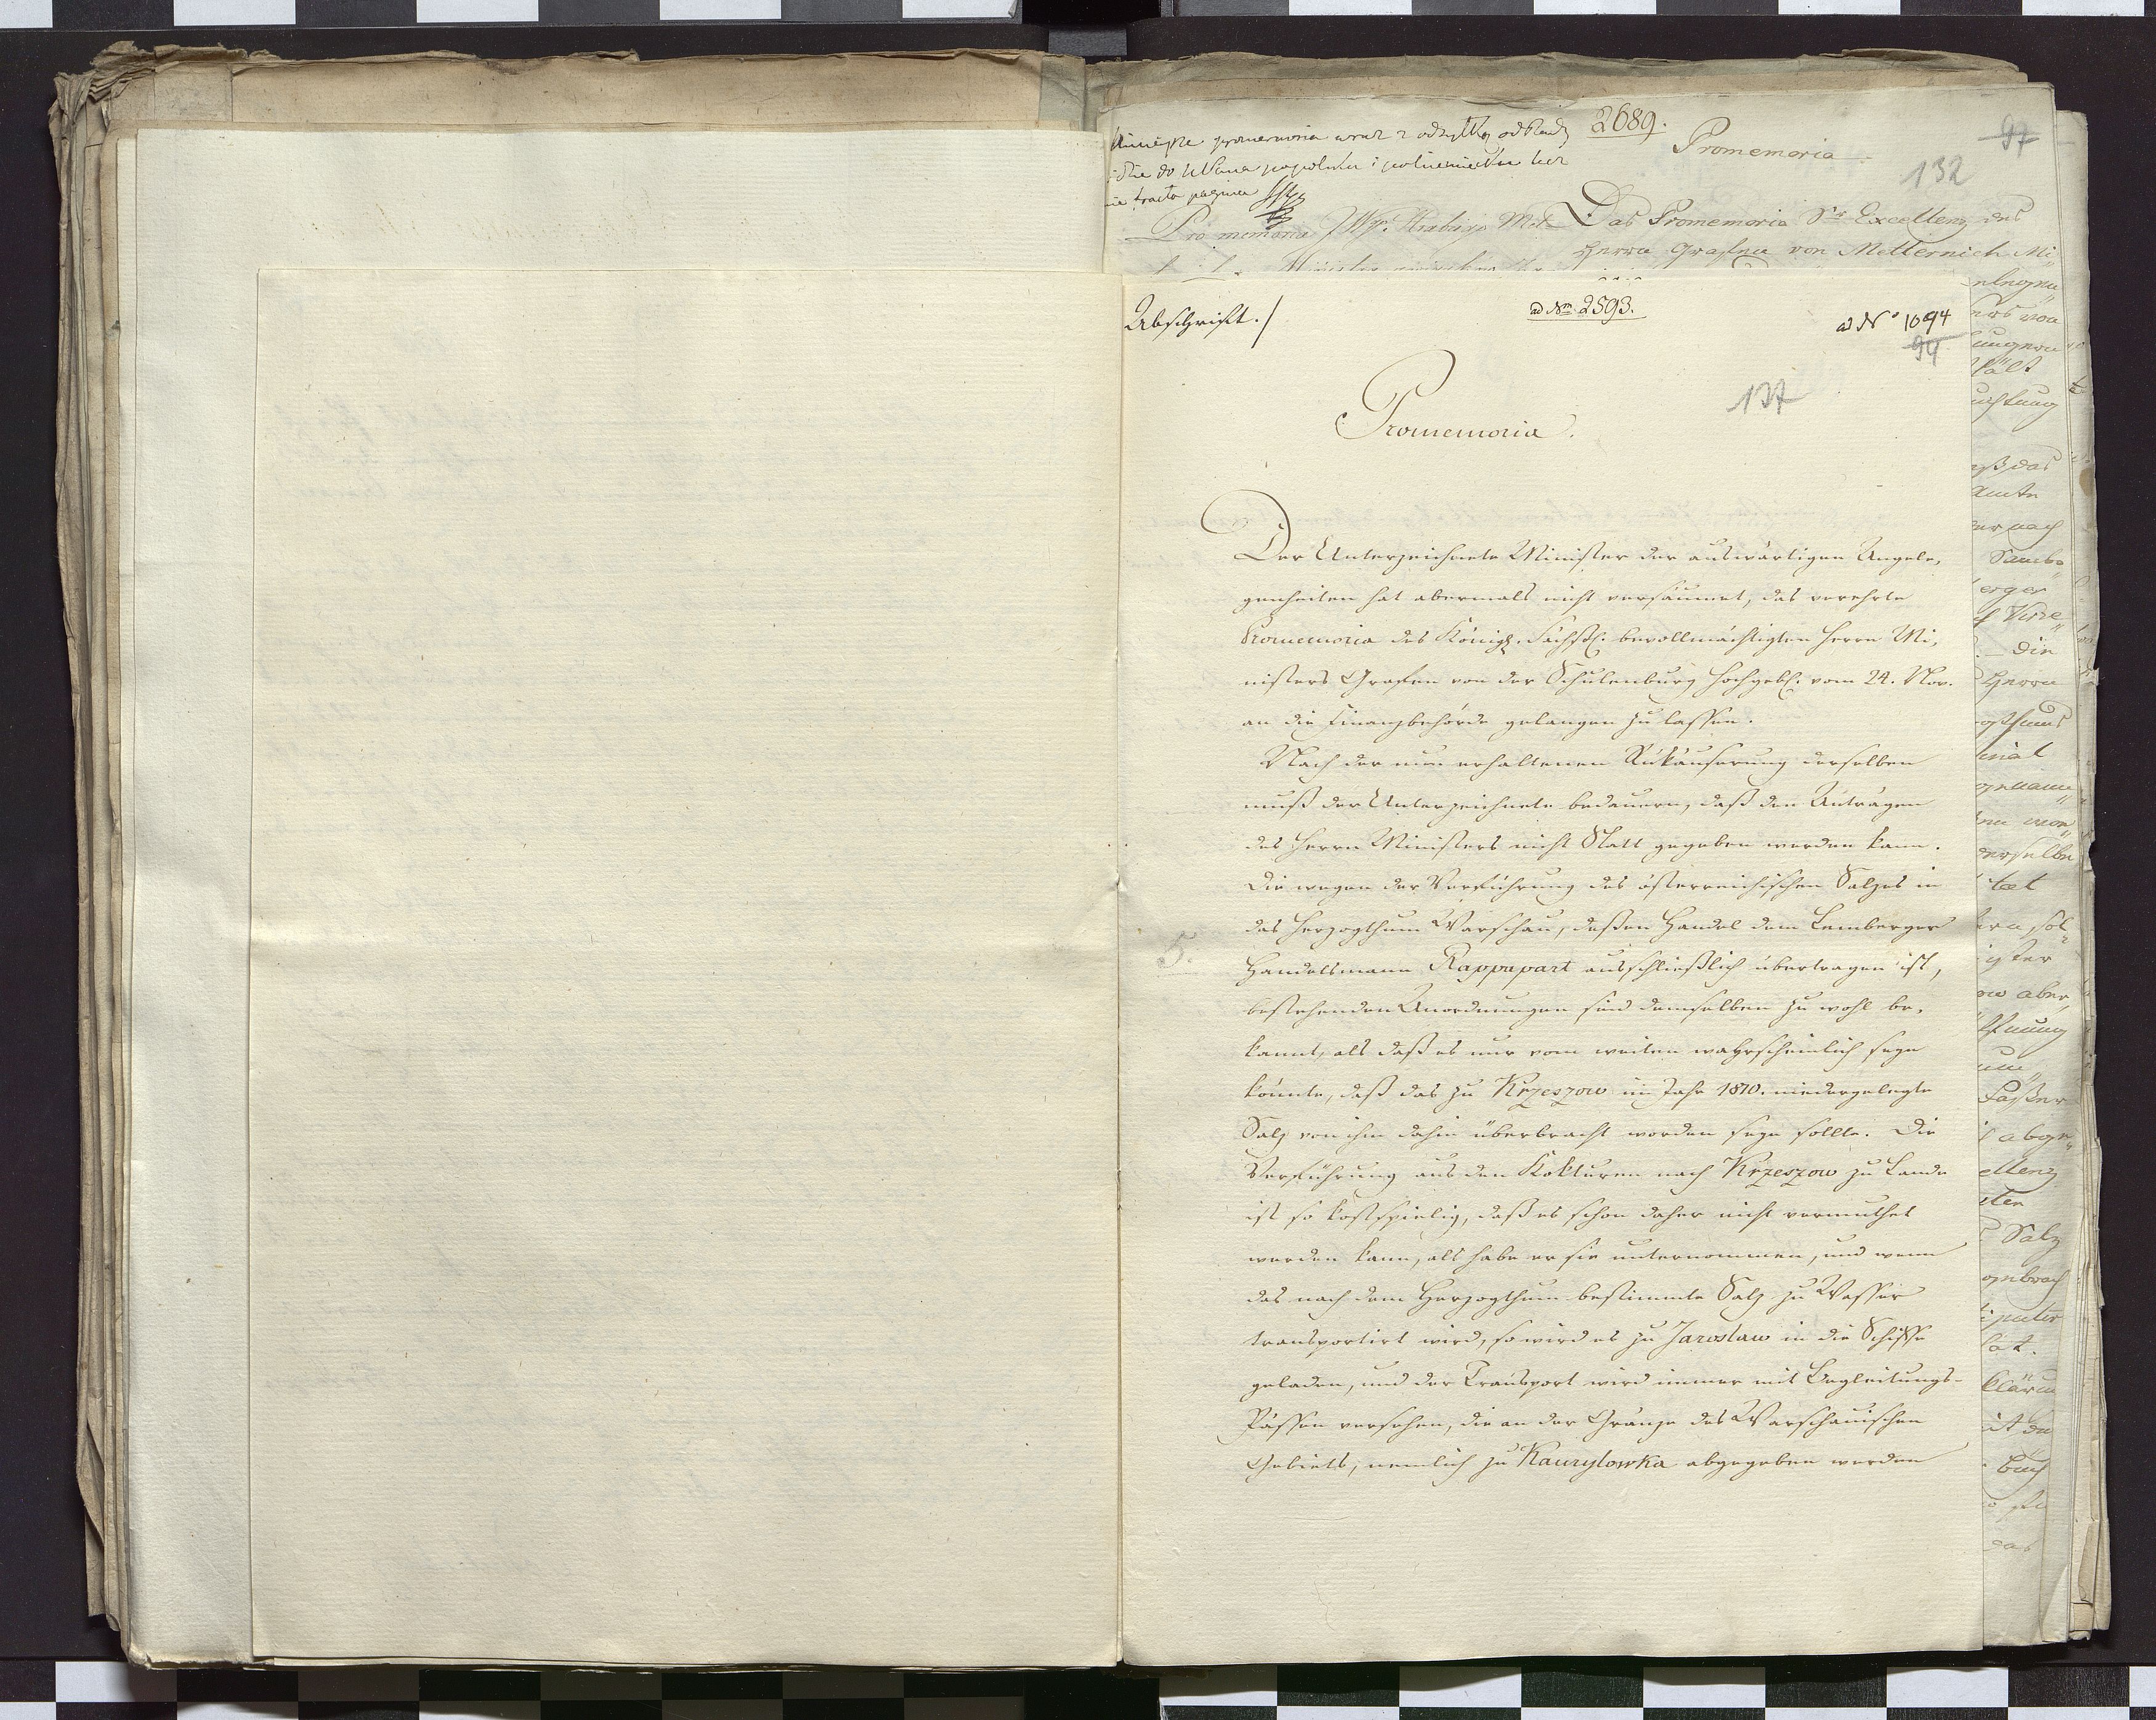 2689.
Promemoria
97
132
Das Promemoria Sr Excellenz des
Herrn Grafen von Metternich Mi„
Pro memoria JWgo Hrabiego Met
Abschrift./
ad Nrm 2593.
ad No 1094
94
137
Promemoria.
Der Unterzeichnete Minister der auswärtigen Angele,
genheiten hat abermals nicht versäumt, das verehrte
Promemoria des Königl. Sächßl. bevollmächtigten Herrn Mi,
nisters Grafen von der Schulenburg Hochgebl. vom 24. Nov.
an die Finanzbehörde gelangen zu lassen.
Nach der nun erhaltenen Rükäuserung derselben
muß der Unterzeichnete bedauern, daß den Anträgen
des Herrn Ministers nicht Statt gegeben werden kann.
Die wegen der Verführung des österreichischen Salzes in
das Herzogthum Warschau, deßen Handel dem Lemberger
5.
Handelsmann Rappapart ausschließlich übertragen ist,
bestehenden Anordnungen sind demselben zu wohl be,
kannt, als daß es nur vom weiten wahrscheinlich seyn
könnte, daß das zu Krzeszow im Jahr 1810. niedergelegte
Salz von ihm dahin überbracht worden seyn sollte. Die
Verführung aus den Kokturen nach Krzeszow zu Lande
ist so kostspielig, daß es schon daher nicht vermuthet
werden kann, als habe er sie unternommen, und wenn
das nach dem Herzogthum bestimmte Salz zu Wasser
transportirt wird, so wird es zu Jaroslaw in die Schiffe
geladen, und der Transport wird immer mit Begleitungs-
Pässen versehen, die an der Gränze des Warschauischen
Gebiets, nemlich zu Kaurylowka abgegeben werden